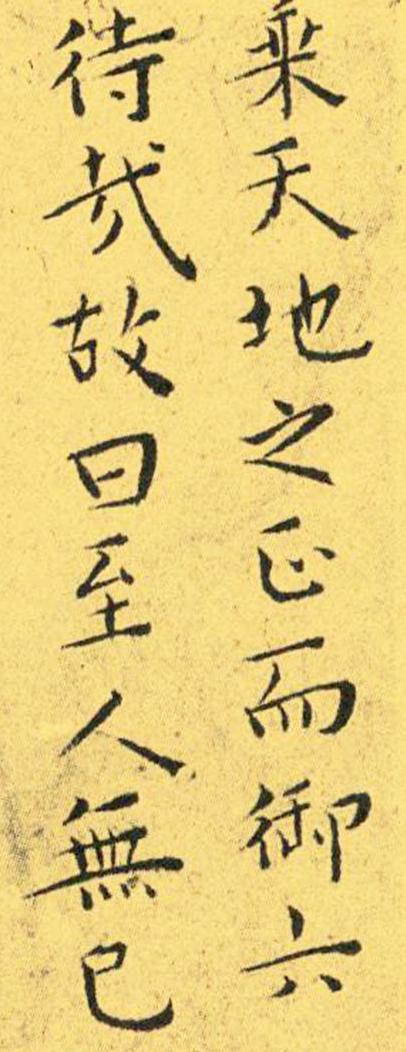 乗天地之正而御六
待哉故曰至人無己